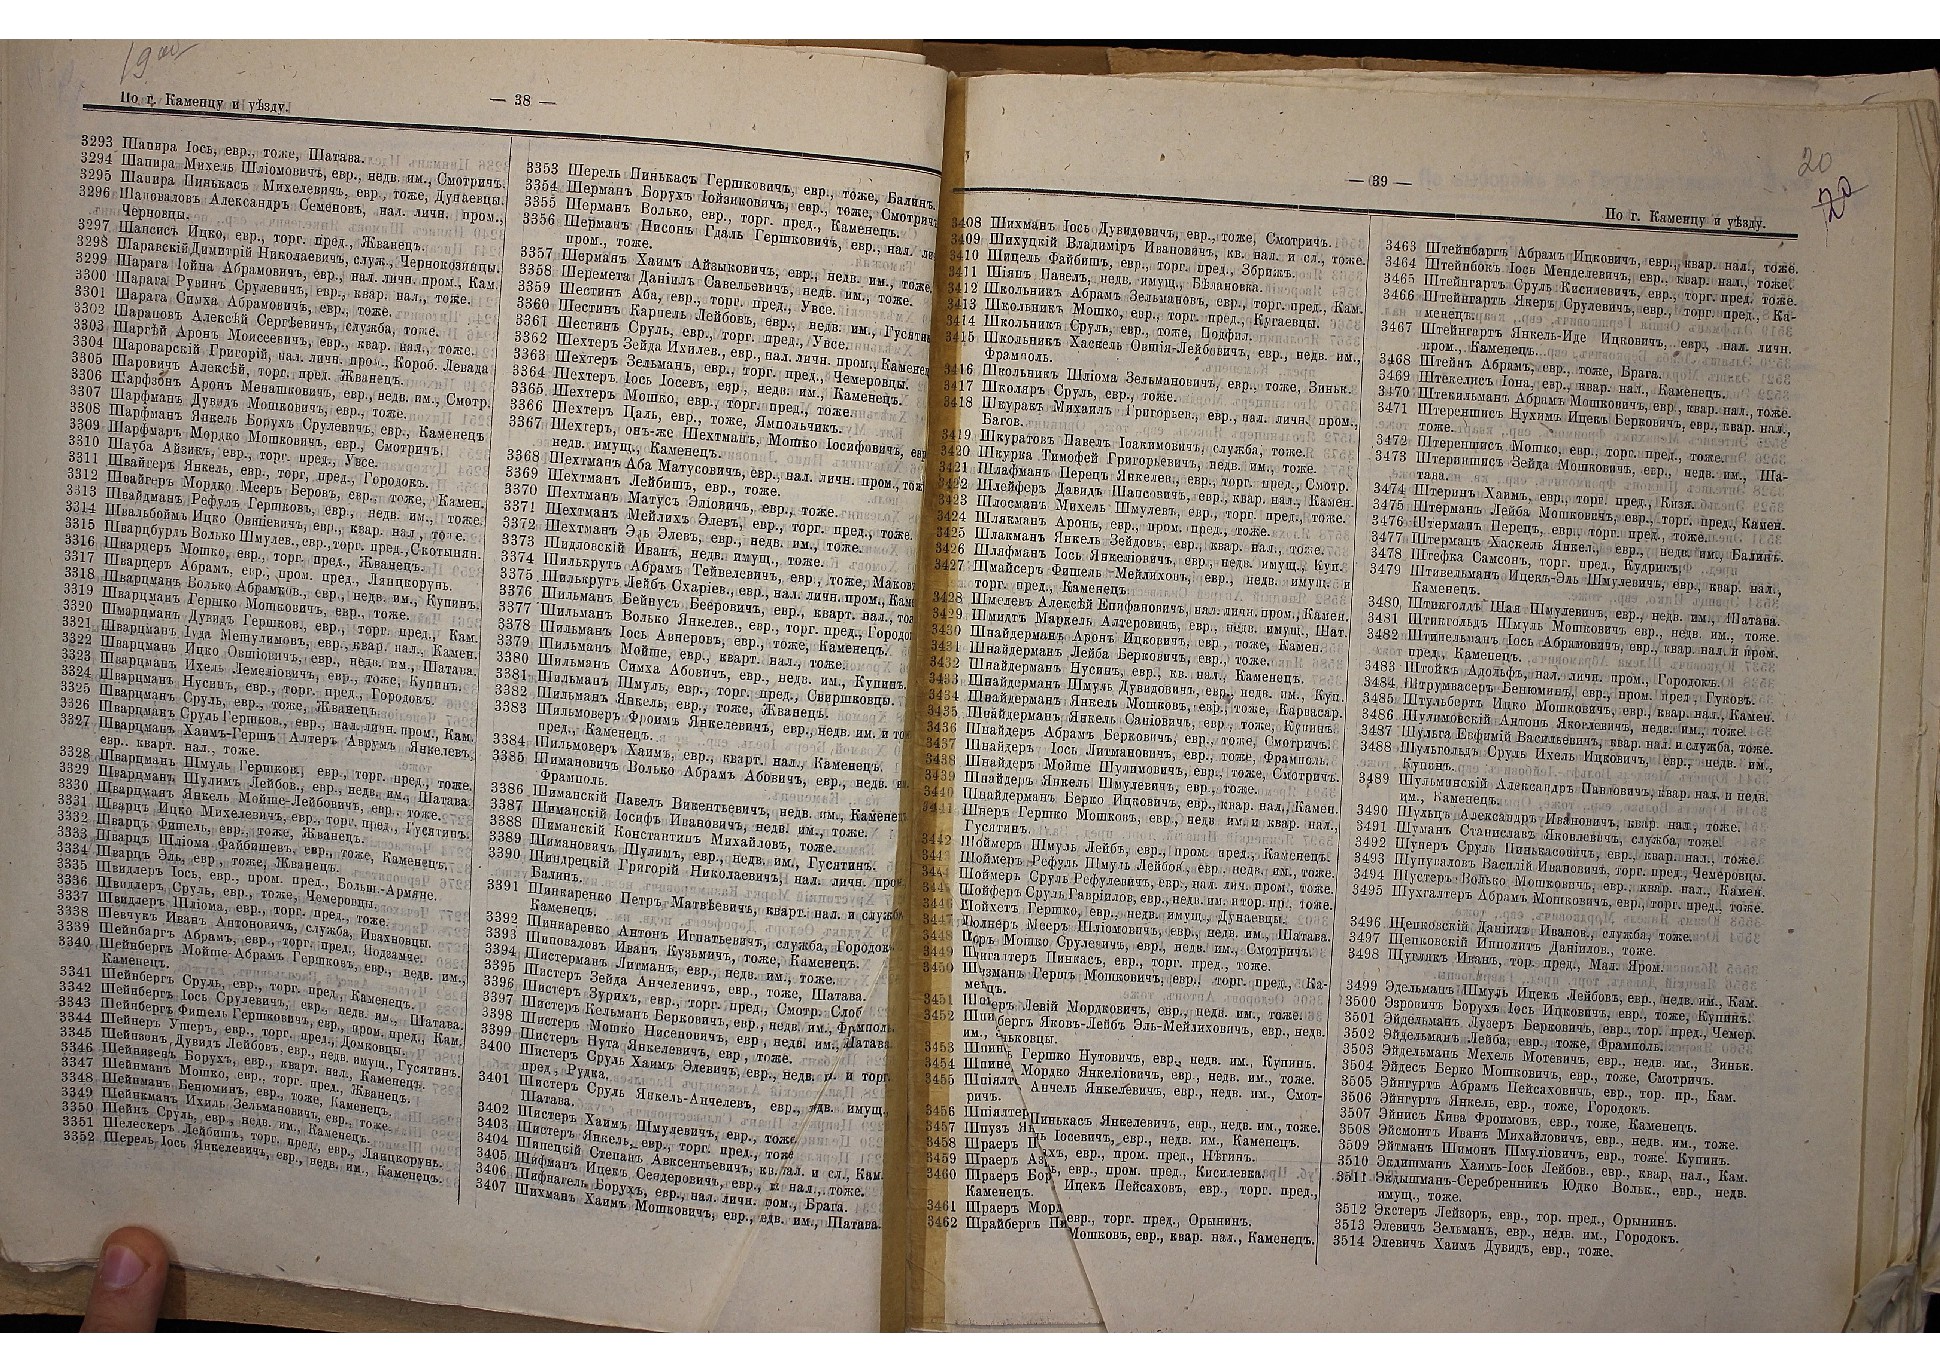 19 об
По г. Каменцу и уѣзду.
— 38 —
3293 Шапира Іось, евр., тоже, Шатава.
3294 Шапира Михель Шліомовичъ, евр., недв. им., Смотричъ.
3295 Шапира Пинькасъ Михелевичъ, евр., тоже, Дунаевцы.
3296 Шаповаловъ Александръ Семеновъ, нал. личн. пром.,
Черновцы.
3297 Шапсисъ Ицко, евр., торг. пред., Жванецъ.
3298 Шаравскій Димитрій Николаевичъ, служ., Чернокозинцы.
3299 Шарага Іойна Абрамовичъ, евр., нал. личн. пром., Кам.
3300 Шарага Рувинъ Срулевичъ, евр., квар. нал., тоже.
3301 Шарага Симха Абрамовичъ, евр., тоже.
3302 Шараповъ Алексѣй Сергѣевичъ, служба, тоже.
3303 Шаргѣй Аронъ Моисеевичъ, евр., квар. нал., тоже.
3304 Шароварскій Григорій, нал. личн. пром., Короб. Левада
3305 Шаровичъ Алексѣй, торг. пред. Жванецъ.
3306 Шарфзонъ Аронъ Менашковичъ, евр., недв. им., Смотр.
3307 Шарфманъ Дувидъ Мошковичъ, евр., тоже.
3308 Шарфманъ Янкель Борухъ Срулевичъ, евр., Каменецъ
3309 Шарфмаръ Мордко Мошковичъ, евр., Смотричъ.
3310 Шауба Айзикъ, евр., торг. пред., Увсе.
3311 Швайгеръ Янкель, евр., торг, пред., Городокъ.
3312 Швайгеръ Мордко Мееръ Беровъ, евр., тоже, Камен.
3313 Швайдманъ Рефулъ Гершковъ, евр., недв. им., тоже.
3314 Швальбоймъ Ицко Овшіевичъ, евр., квар. нал., тоже.
3315 Шварцбурдъ Волько Шмулев., евр., торг. пред., Скотынян.
3316 Шварцеръ Мошко, евр., торг. пред., Жванецъ.
3317 Шварцеръ Абрамъ, евр., пром. пред., Лянцкорунь.
3318 Шварцманъ Волько Абрамков., евр., недв. им., Купинъ.
3319 Шварцманъ Гершко Мошковичъ, евр., тоже.
3320 Шмарцманъ Дувидъ Гершков., евр., торг. пред., Кам.
3321 Шварцманъ Іуда Мешулимовъ, евр., квар. нал., Камен.
3322 Шварцманъ Ицко Овшіовичъ, евр., недв. им., Шатава.
3323 Шварцманъ Ихель Лемеліовичъ, евр., тоже, Купинъ.
3324 Шварцманъ Нусинъ, евр., торг. пред., Городокъ.
3325 Шварцманъ Сруль, евр., тоже, Жванецъ.
3326 Шварцманъ Сруль Гершков., евр., нал. личн. пром., Кам.
3327 Шварцманъ Хаимъ-Гершъ Алтеръ Аврумъ Янкелевъ,
евр. кварт. нал., тоже.
3328 Шварцманъ Шмуль Гершков., евр., торг. пред., тоже.
3329 Шварцманъ Шулимъ Лейбов., евр., недв. им., Шатава.
3330 Шварцманъ Янкель Мойше-Лейбовичъ, евр., тоже.
3331 Шварцъ Ицко Михелевичъ, евр., торг. пред., Гусятинъ.
3332 Шварцъ Фишель, евр., тоже, Жванецъ.
3333 Шварцъ Шліома Файбишевъ, евр., тоже, Каменецъ.
3334 Шварцъ Эль, евр, тоже, Жванецъ.
3335 Швидлеръ Іось, евр., пром. пред., Больш.-Армяне.
3336 Швидлеръ Сруль, евр., тоже, Чемеровцы.
3337 Швидлеръ Шліома, евр., торг. пред., тоже.
3338 Шевчукъ Иванъ Антоновичъ, служба, Ивахновцы.
3339 Шейнбаргъ Абрамъ, евр., торг. пред., Подзамче.
3340 Шейнбергъ Мойше-Абрамъ Гершковъ, евр., недв. им.,
Каменецъ.
3341 Шейнбергъ Сруль, евр., торг. пред., Каменецъ.
3342 Шейнбергъ Іось Срулевичъ, евр., недв. им., Шатава.
3343 Шейнбергъ Фишель Гершковичъ, евр., пром. пред., Кам.
3344 Шейнеръ Ушеръ, евр., торг. пред., Домковцы.
3345 Шейнзонъ Дувидъ Лейбовъ, евр., недв. имущ., Гусятинъ.
3346 Шейнизенъ Борухъ, евр., кварт. нал., Каменецъ.
3347 Шейнманъ Мошко, евр., торг. пред., Жванецъ.
3348 Шейнманъ Бенюминъ, евр., тоже, Каменецъ.
3349 Шейнкманъ Ихиль Зельмановичъ, евр., тоже.
3350 Шейнъ Сруль, евр., недв. им., Каменецъ.
3351 Шелескеръ Лейбишъ, торг. пред., евр., Лянцкорунь.
3352 Шерель Іось Янкелевичъ, евр., недв. им., Каменецъ.
3353 Шерель Пинькасъ Гершковичъ, евр., тоже, Балинъ.
3354 Шерманъ Борухъ Іойзиковичъ, евр., тоже, Смотричъ
3355 Шерманъ Волько, евр., торг. пред., Каменецъ.
3356 Шерманъ Нисонъ Гдаль Гершковичъ, евр., нал.
пром., тоже.
3357 Шерманъ Хаимъ Айзыковичъ, евр., недв. им., тоже.
3358 Шеремета Даніилъ Савельевичъ, недв. им., тоже.
3359 Шестинъ Аба, евр., торг. пред., Увсе.
3360 Шестинъ Карпель Лейбовъ, евр., недв. им., Гусятин
3361 Шестинъ Сруль, евр., торг. пред., Увсе.
3362 Шехтеръ Зейда Ихилев., евр., нал. личн. пром., Каменец
3363 Шехтеръ Зельманъ, евр., торг. пред., Чемеровцы.
3364 Шехтеръ Іось Іосевъ, евр., недв. им., Каменецъ.
3365 Шехтеръ Мошко, евр., торг. пред., тоже.
3366 Шехтеръ Цаль, евр., тоже, Ямпольчикъ.
3367 Шехтеръ, онъ-же Шехтманъ, Мошко Іосифовичъ, евр
недв. имущ., Каменецъ.
3368 Шехтманъ Аба Матусовичъ, евр., нал. личн. пром., тож
3369 Шехтманъ Лейбишъ, евр., тоже.
3370 Шехтманъ Матусъ Эліовичъ, евр., тоже.
3371 Шехтманъ Мейлихъ Элевъ, евр., торг. пред., тоже.
3372 Шехтманъ Эль Элевъ, евр., недв. им., тоже.
3373 Шидловскій Иванъ, недв. имущ., тоже.
3374 Шилькрутъ Абрамъ Тейвелевичъ, евр., тоже, Маков
3375 Шилькрутъ Лейбъ Схаріев., евр., нал. личн. пром., Каме
3376 Шильманъ Бейнусъ Бееровичъ, евр., кварт. нал., тож
3377 Шильманъ Волько Янкелев., евр., торг. пред., Городо
3378 Шильманъ Іось Авнеровъ, евр., тоже, Каменецъ.
3379 Шильманъ Мойше, евр., кварт. нал., тоже.
3380 Шильманъ Симха Абовичъ, евр., недв. им., Купинъ.
3381 Шильманъ Шмуль, евр., торг. пред., Свиршковцы.
3382 Шильманъ Янкель, евр., тоже, Жванецъ.
3383 Шильмоверъ Фроимъ Янкелевичъ, евр., недв. им. и то
пред., Каменецъ.
3384 Шильмоверъ Хаимъ, евр., кварт. нал., Каменецъ.
3385 Шимановичъ Волько Абрамъ Абовичъ, евр., недв.
Фрамполь.
3386 Шиманскій Павелъ Викентьевичъ, недв. им., Каменец
3387 Шиманскій Іосифъ Ивановичъ, недв. им., тоже.
3388 Шиманскій Константинъ Михайловъ, тоже.
3389 Шимановичъ Шулимъ, евр., недв. им., Гусятинъ.
3390 Шиндрецкій Григорій Николаевичъ, нал. личн. пром
Балинъ.
3391 Шинкаренко Петръ Матвѣевичъ, кварт. нал. и служба
Каменецъ.
3392 Шинкаренко Антонъ Игнатьевичъ, служба, Городок
3393 Шиповаловъ Иванъ Кузьмичъ, тоже, Каменецъ.
3394 Шистерманъ Литманъ, евр., недв. им., тоже.
3395 Шистеръ Зейда Анчелевичъ, евр., тоже, Шатава.
3396 Шистеръ Зурихъ, евр., торг. пред., Смотр. Слоб
3397 Шистеръ Кельманъ Беркович, евр., недв. им., Фрамполь.
3398 Шистеръ Мошко Нисеновичъ, евр., недв. им., Шатава.
3399 Шистеръ Нута Янкелевичъ, евр., тоже.
3400 Шистеръ Сруль Хаимъ Элевичъ, евр., недв. и торг.
пред., Рудка.
3401 Шистеръ Сруль Янкель-Анчелевъ, евр., недв. имущ.,
Шатава.
3402 Шистеръ Хаимъ Шмулевичъ, евр., тоже
3403 Шистеръ Янкель, евр., торг. пред., тоже
3404 Шипецкій Степанъ Авксентьевичъ, кв. нал. и сл., Кам.
3405 Шифманъ Ицекъ Сендеровичъ, евр., нал., тоже.
3406 Шифнагель Борухъ, евр., нал. личн. пром., Брага.
3407 Шихманъ Хаимъ Мошковичъ, евр., недв. им., Шатава.
— 39 —
20
20
По г. Каменцу и уѣзду.
3408 Шихманъ Іось Дувидовичъ, евр., тоже, Смотричъ.
3409 Шихуцкій Владиміръ Ивановичъ, кв. нал. и сл., тоже.
3410 Шицель Файбишъ, евр., торг. пред., Збрижъ.
3411 Шіянъ Павелъ, недв. имущ., Бѣлановка.
3412 Школьникъ Абрамъ Зельмановъ, евр., торг. пред., Кам.
3413 Школьникъ Мошко, евр., торг. пред., Кугаевцы.
3414 Школьникъ Сруль, евр., тоже, Подфил.
3415 Школьникъ Хаскель Овшія-Лейбовичъ, евр., недв. им.,
Фрамполь.
3416 Школьникъ Шліома Зельмановичъ, евр., тоже, Зиньк.
3417 Школяръ Сруль, евр., тоже.
3418 Шкуракъ Михаилъ Григорьев., евр., нал. личн. пром.,
Багов.
3419 Шкуратовъ Павелъ Іоакимовичъ, служба, тоже.
3420 Шкурка Тимофей Григорьевичъ, недв. им., тоже.
3421 Шлафманъ Перецъ Янкелев., евр., торг. пред., Смотр.
3422 Шлейферъ Давидъ Шапсовичъ, евр., квар. нал., Камен.
3423 Шлосманъ Михель Шмулевъ, евр., торг. пред., тоже.
3424 Шлякманъ Аронъ, евр., пром. пред., тоже.
3425 Шлакманъ Янкель Зейдовъ, евр., квар. нал., тоже.
3426 Шляфманъ Іось Янкеліовичъ, евр., недв. имущ., Куп.
3427 Шмайсеръ Фишель Мейлиховъ, евр., недв. имущ. и
торг. пред., Каменецъ.
3428 Шмелевъ Алексѣй Епифановичъ, нал. личн. пром., Камен.
3429 Шмидтъ Маркель Алтеровичъ, евр., недв. имущ., Шат.
3430 Шнайдерманъ Аронъ Ицковичъ, евр., тоже, Камен.
3431 Шнайдерманъ Лейба Берковичъ, евр., тоже.
3432 Шнайдерманъ Нусинъ, евр., кв. нал., Каменецъ.
3433 Шнайдерманъ Шмуль Дувидовичъ, евр., недв. им., Куп.
3434 Шнайдерманъ Янкель Мошковъ, евр., тоже, Карвасар.
3435 Шнайдерманъ Янкель Саніовичъ, евр., тоже, Купинъ.
3436 Шнайдеръ Абрамъ Берковичъ, евр., тоже, Смотричъ.
3437 Шнайдеръ Іось Литмановичъ, евр., тоже, Фрамполь.
3438 Шнайдеръ Мойше Шулимовичъ, евр., тоже, Смотричъ.
3439 Шнайдеръ Янкель Шмулевичъ, евр., тоже.
3440 Шнайдерманъ Берко Ицковичъ, евр., квар. нал., Камен.
3441 Шнеръ Гершко Мошковъ, евр., недв. им. и квар. нал.,
Гусятинъ.
3442 Шоймеръ Шмуль Лейбъ, евр., пром. пред., Каменецъ.
3443 Шоймеръ Рефуль Шмуль Лейбов., евр., недв. им., тоже.
3444 Шоймеръ Сруль Рефулевичъ, евр., нал. лич. пром., тоже.
3445 Шойферъ Сруль Гавріилов., евр., недв. им. и тор. пр., тоже.
3446 Шойхетъ Гершко, евр., недв. имущ., Дунаевцы.
3447 Шолнеръ Мееръ Шліомовичъ, евр., недв. им., Шатава.
3448 Шоръ Мошко Срулевичъ, евр., недв. им., Смотричъ.
3449 Пинкасъ, евр., торг. пред., тоже.
3450 Гершъ Мошковичъ, евр., торг. пред., Ка-
менецъ.
3451 Левій Мордковичъ, евр., недв. им., тоже.
3452 Яковъ-Лейбъ Эль-Мейлиховичъ, евр., недв.
им.,
3453 Гершко Нутовичъ, евр., недв. им., Купинъ.
3454 Мордко Янкеліовичъ, евр., недв. им., тоже.
3455 Анчель Янкелевичъ, евр., недв. им., Смот-
ричъ.
3456 Шпіалтер Пинькасъ Янкелевичъ, евр., недв. им., тоже.
3457 Шпузъ Іосевичъ, евр., недв. им., Каменецъ.
3458 Шраеръ евр., пром. пред., Нѣгинъ.
3459 Шраеръ евр., пром. пред., Кисилевка.
3460 Шраеръ Бор Ицекъ Пейсаховъ, евр., торг. пред.,
Каменецъ.
3461 Шраеръ Морд евр., торг. пред., Орынинъ.
3462 Шрайбергъ Мошковъ, евр., квар. нал., Каменецъ.
3463 Штейнбаргъ Абрамъ Ицковичъ, евр., квар. нал., тоже.
3464 Штейнбокъ Іось Менделевичъ, евр., квар. нал., тоже.
3465 Штейнгартъ Сруль Кисилевичъ, евр., торг. пред. тоже.
3466 Штейнгартъ Якеръ Срулевичъ, евр., торг. пред., Ка-
менецъ.
3467 Штейнгартъ Янкель-Иде Ицковичъ, евр., нал. личн.
пром., Каменецъ.
3468 Штейнъ Абрамъ, евр., тоже, Брага.
3469 Штекелисъ Іона, евр., квар. нал., Каменецъ.
3470 Штекильманъ Абрамъ Мошковичъ, евр., квар. нал., тоже.
3471 Штереншисъ Нухимъ Ицекъ Берковичъ, евр., квар. нал.,
тоже.
3472 Штереншисъ Мошко, евр., торг. пред., тоже.
3473 Штерншисъ Зейда Мошковичъ, евр., недв. им., Ша-
тава.
3474 Штеринъ Хаимъ, евр., торг. пред., Кизя.
3475 Штерманъ Лейба Мошковичъ, евр., торг. пред., Камен.
3476 Штерманъ Перецъ, евр., торг. пред., тоже.
3477 Штерманъ Хаскель Янкел., евр., недв. им., Балинъ.
3478 Штефка Самсонъ, торг. пред., Кудринк.
3479 Штивельманъ Ицекъ-Эль Шмулевичъ, евр., квар. нал.,
Каменецъ.
3480 Штикголдъ Шая Шмулевич, евр., недв. им., Шатава.
3481 Штикгольдъ Шмуль Мошковичъ евр., недв. им., тоже.
3482 Штипельманъ Іось Абрамовичъ, евр., квар. нал. и пром.
пред., Каменецъ.
3483 Штойкъ Адольфъ, нал. личн. пром., Городокъ.
3484 Штрумвасеръ Бенюминъ, евр., пром. пред., Гуковъ.
3485 Штульбергъ Ицко Мошковичъ, евр., квар. нал., Камен.
3486 Шулимовскій Антонъ Яковлевичъ, недв. им., тоже.
3487 Шульга Евфимій Васильевичъ, квар. нал. и служба, тоже.
3488 Шульгольдъ Сруль Ихель Ицковичъ, евр., недв. им.,
Купинъ.
3489 Шульминскій Александръ Павловичъ, квар. нал. и недв.
им., Каменецъ.
3490 Шульцъ Александръ Ивановичъ, квар. нал., тоже.
3491 Шуманъ Станиславъ Яковлевичъ, служба, тоже.
3492 Шуперъ Сруль Пинькасовичъ, евр., квар. нал., тоже.
3493 Шупуваловъ Василій Ивановичъ, торг. пред., Чемеровцы.
3494 Шустеръ Волько Мошковичъ, евр., квар. нал., Камен.
3495 Шухгалтеръ Абрамъ Мошковичъ, евр., торг. пред., тоже.
3496 Щепковскій Даніилъ Иванов., служба, тоже.
3497 Щепковскій Ипполитъ Даніилов., тоже.
3498 Щуплякъ Иванъ, тор. пред., Мал. Яром.
3499 Эдельманъ Шмуль Ицекъ Лейбовъ, евр., недв. им., Кам.
3500 Эзровичъ Борухъ Іось Ицковичъ, евр., тоже, Купинъ.
3501 Эйдельманъ Лузеръ Берковичъ, евр., тор. пред., Чемер.
3502 Эйдельманъ Лейба, евр., тоже, Фрамполь.
3503 Эйдельманъ Мехель Мотевичъ, евр., недв. им., Зиньк.
3504 Эйдесъ Берко Мошковичъ, евр., тоже, Смотричъ.
3505 Эйнгуртъ Абрамъ Пейсаховичъ, евр., тор. пр., Кам.
3506 Эйнгуртъ Янкель, евр., тоже, Городокъ.
3507 Эйнисъ Кива Фроимовъ, евр., тоже, Каменецъ.
3508 Эйсмонтъ Иванъ Михайловичъ, евр., недв. им., тоже.
3509 Эйтманъ Шимонъ Шмуліовичъ, евр., тоже. Купинъ.
3510 Экдишманъ Хаимъ-Іось Лейбов., евр., квар. нал., Кам.
3511 Экдышманъ-Серебренникъ Юдко Вольк., евр., недв.
имущ., тоже.
3512 Экстеръ Лейзоръ, евр., тор. пред., Орынинъ.
3513 Элевичъ Зельманъ, евр., недв. им., Городокъ.
3514 Элевичъ Хаимъ Дувидъ, евр., тоже.